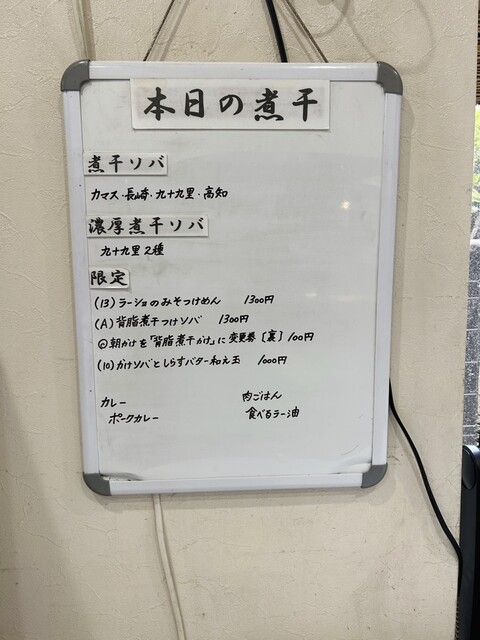 本日の煮干
煮干ソバ
カマス・長崎・九十九里・高知
濃厚煮干ソバ
九十九里2種
限定
(13) ラーショのみそつけめん 1300円
(A) 背脂煮干つけソバ 1300円
◎朝かけを「背脂煮干かけ」に変更券〔裏〕100円
(10) かけソバとしらすバター和え玉 1000円
カレー 肉ごはん
ポークカレー 食べるラー油